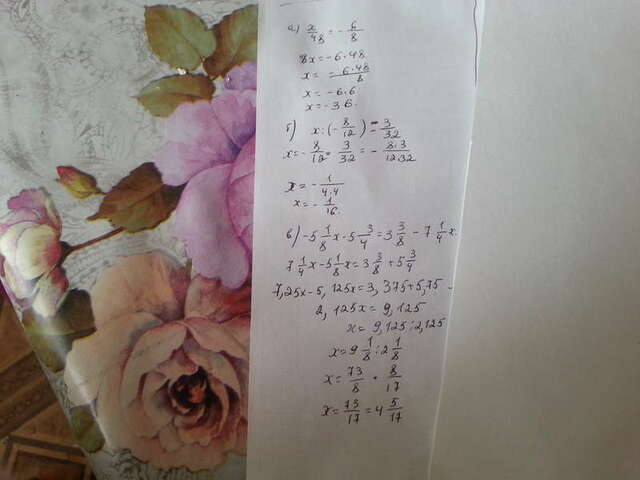 а) x/48 = - 6/8
8x = -6·48
x = - 6·48/8
x = -6·6
x = -36.
б) x : (- 8/12) = 3/32
x = - 8/12 · 3/32 = - 8·3/12·32
x = - 1/4·4
x = - 1/16.
в) -5 1/8 x - 5 3/4 = 3 3/8 - 7 1/4 x.
7 1/4 x - 5 1/8 x = 3 3/8 + 5 3/4
7,25x - 5,125x = 3,375 + 5,75 -
2,125x = 9,125
x = 9,125 : 2,125
x = 9 1/8 : 2 1/8
x = 73/8 · 8/17
x = 73/17 = 4 5/17